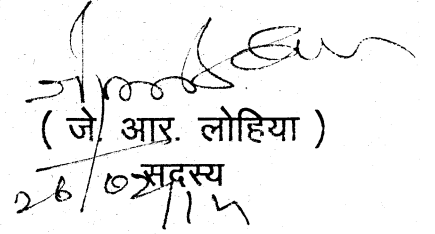 ( जे. आर. लोहिया )
सदस्य
26/02/14